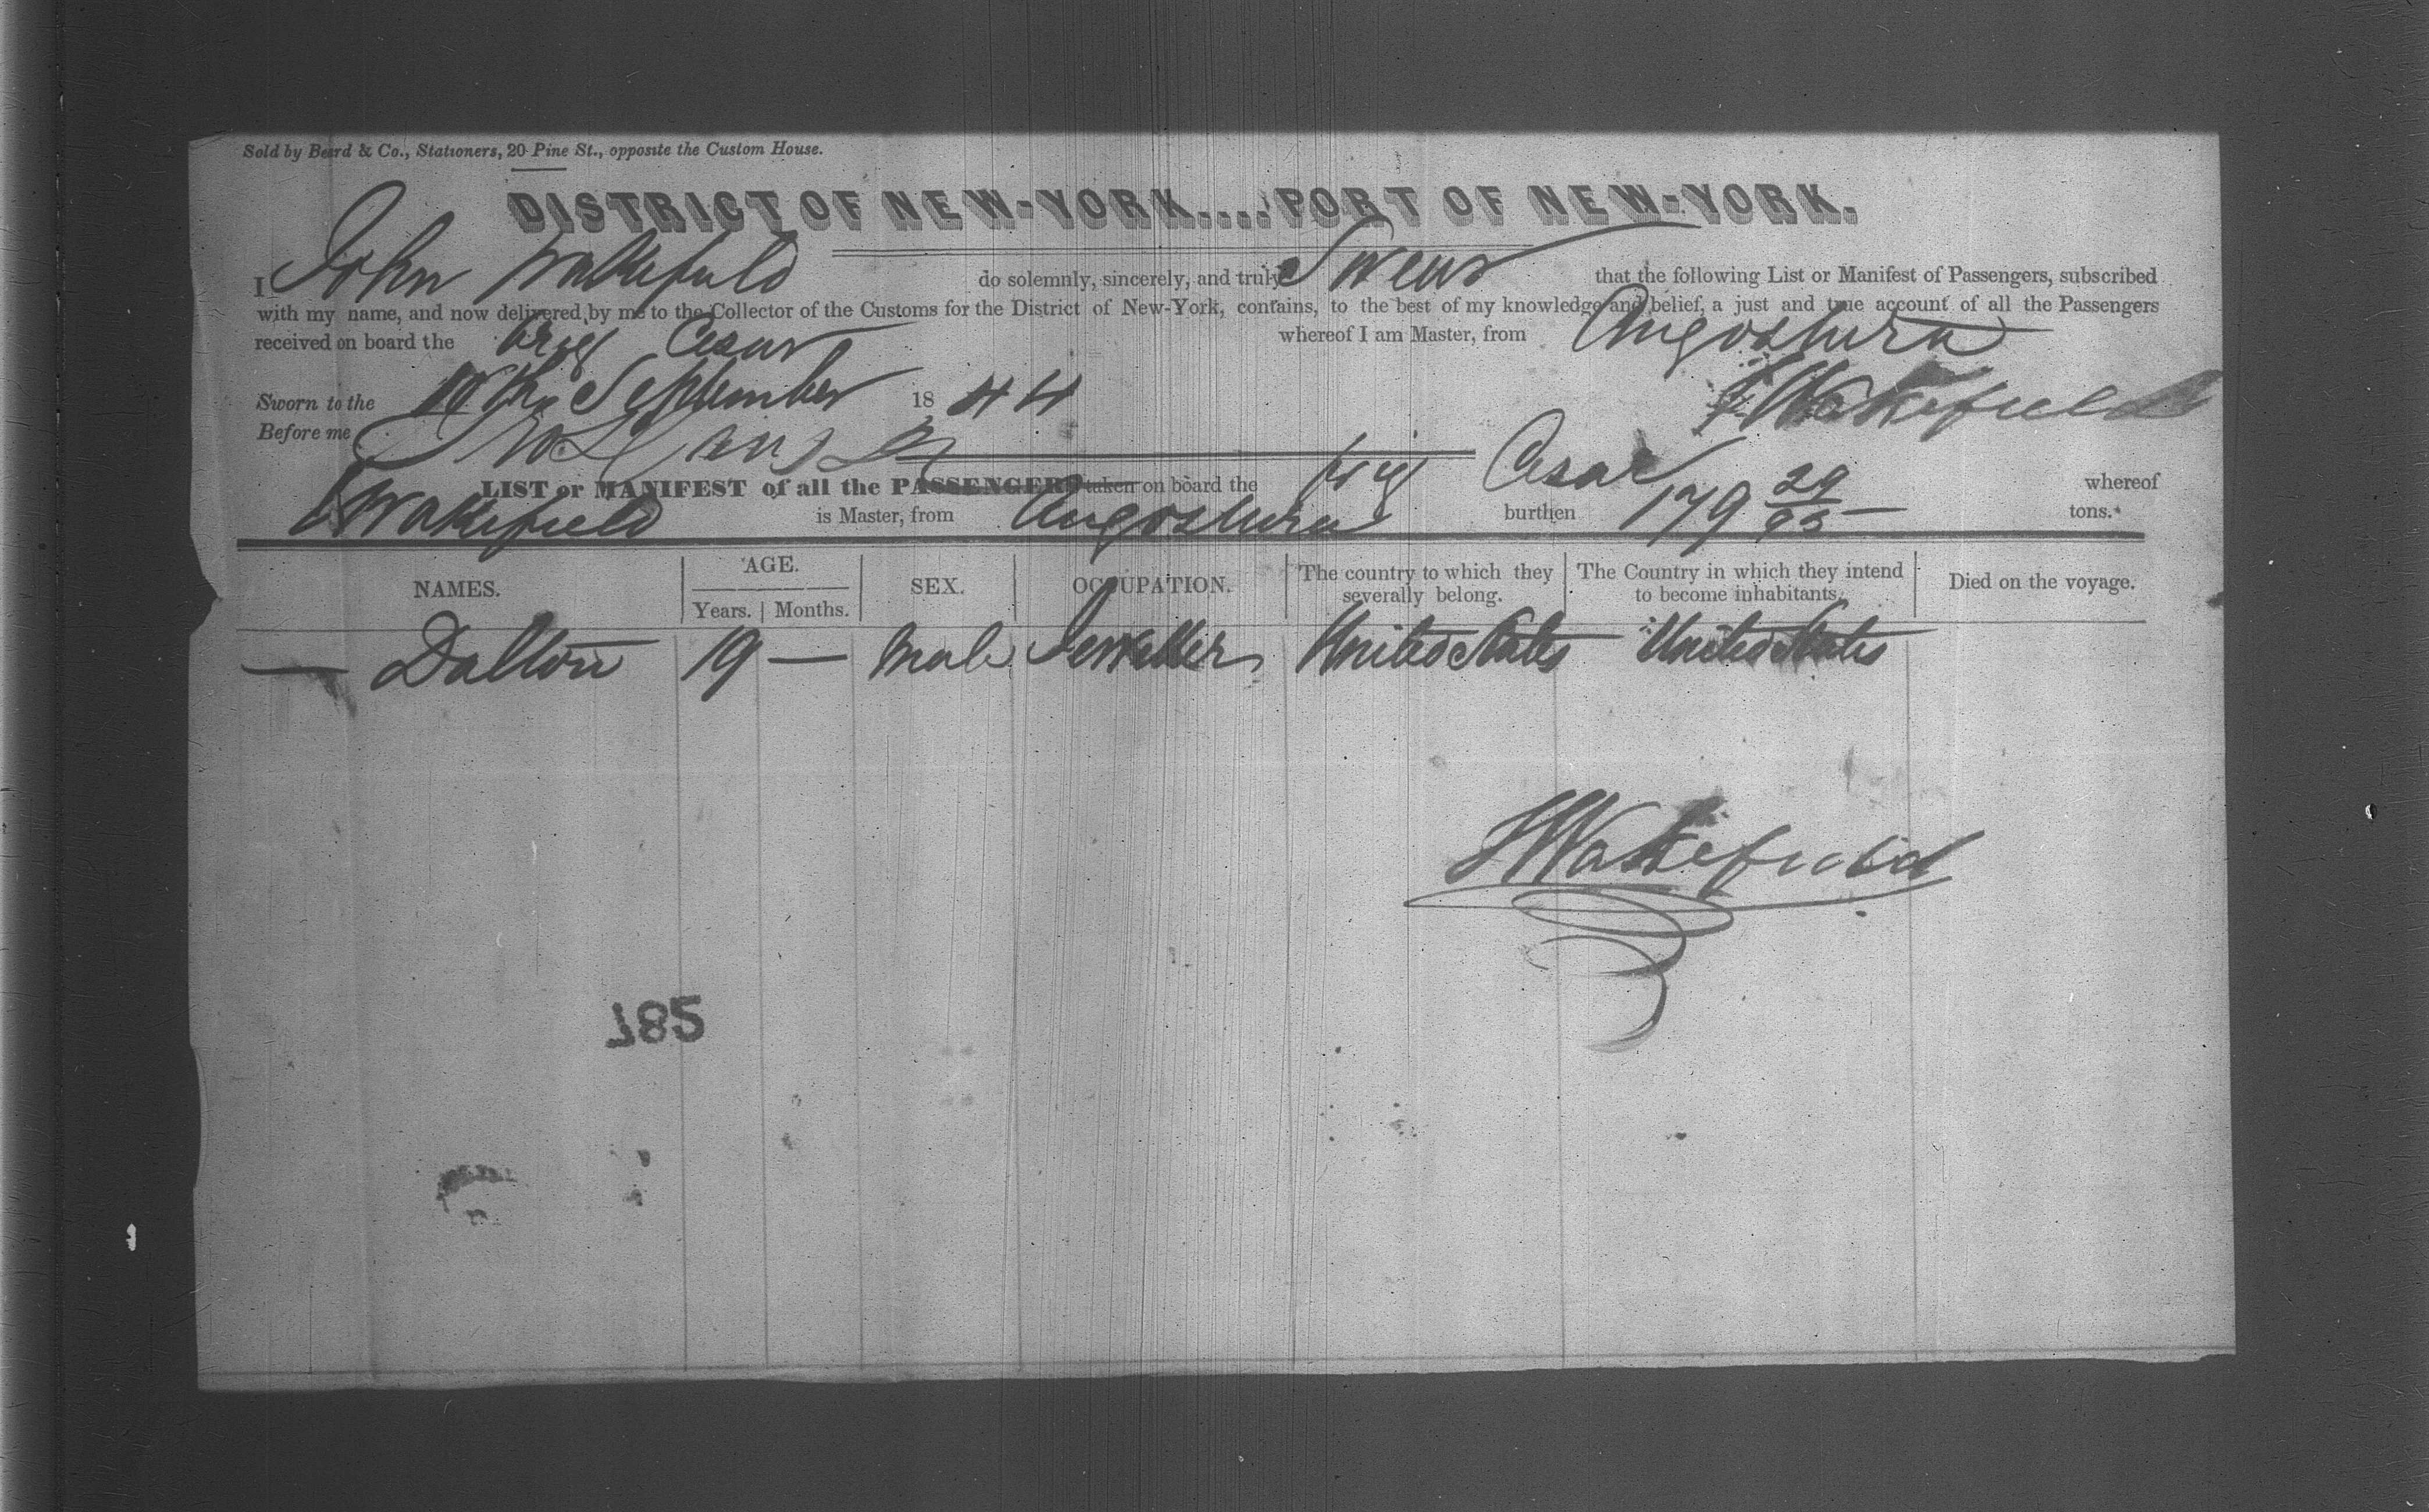 Sold by Beard & Co., Stationers, 20 Pine St., opposite the Custom House.
DISTRICT OF NEW-YORK....PORT OF NEW-YORK.
I John Wakefield do solemnly, sincerely, and truly Swear that the following List or Manifest of Passengers, subscribed
with my name, and now delivered by me to the Collector of the Customs for the District of New-York, contains, to the best of my knowledge and belief, a just and true account of all the Passengers
received on board the Brig Cesar whereof I am Master, from Angostura
Sworn to the September 1844 J Wakefield
Before me
LIST or MANIFEST of all the PASSENGERS taken on board the brig Cesar whereof
J Wakefield is Master, from Angostura burthen 179 29/95 tons.
NAMES. AGE. Years. Months. SEX. OCCUPATION. The country to which they severally belong. The Country in which they intend to become inhabitants. Died on the voyage.
— Dalton 19 — Male Jeweller United States United States
J Wakefield
785